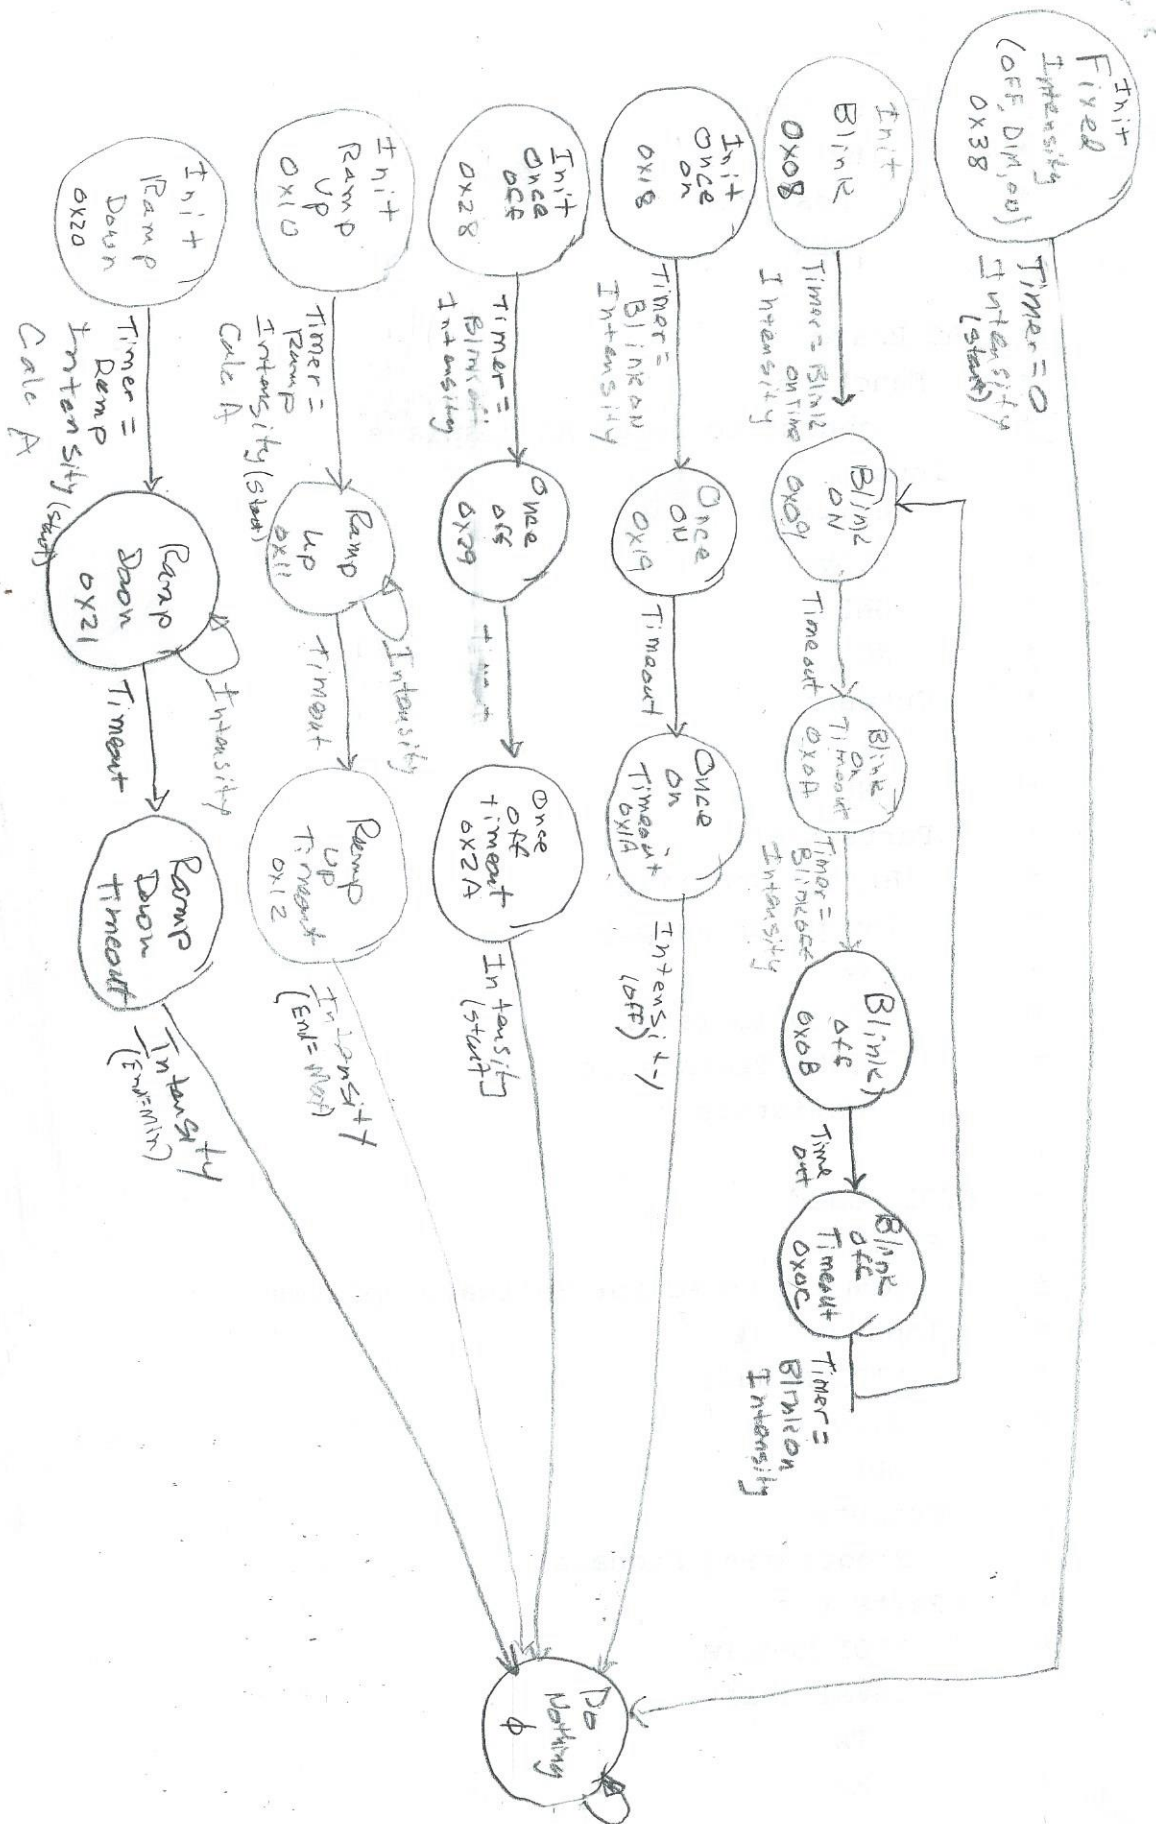 Init
Fixed
Intensity
(OFF, DIM, ON)
0x38
Timer=0
Intensity
(start)
Init
Blink
0x08
Timer = Blink
on Time
Intensity
Blink
ON
0x09
Timeout
Blink
on
Timeout
0x0A
Timer =
Blinkoff
Intensity
Blink
off
0x0B
Time
out
Blink
off
Timeout
0x0C
Timer =
Blinkon
Intensity
Init
Once
on
0x18
Timer =
Blink on
Intensity
Once
ON
0x19
Timeout
Once
on
Timeout
0x1A
(off)
Init
Once
off
0x28
Timer =
Intensity
Once
off
0x29
Once
off
timeout
0x2A
Intensity
(start)
Init
Ramp
Up
0x10
Timer =
Ramp
Intensity (start)
Calc A
Ramp
up
0x11
Intensity
Timeout
Ramp
up
Timeout
0x12
Intensity
Init
Ramp
Down
0x20
Timer =
Ramp
Intensity (start)
Calc A
Ramp
Down
0x21
Intensity
Timeout
Ramp
Down
timeout
Intensity
(End=Min)
Do
Nothing
ϕ